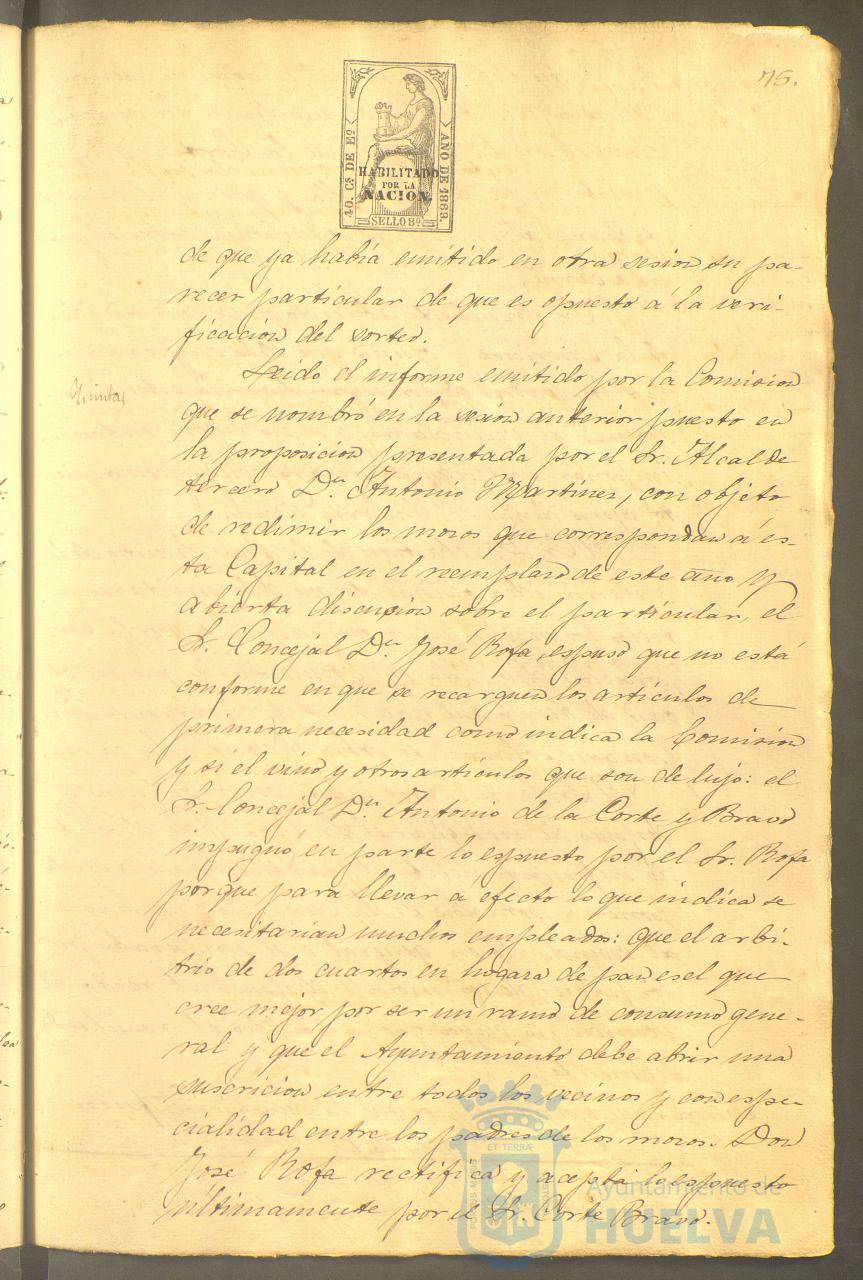 76.
40. Cs. DE Eo.
AÑO DE 1869.
HABILITADO
POR LA
NACION.
SELLO 8º
de que ya había emitido en otra sesion su pa-
recer particular de que es opuesto á la veri-
ficacion del sorteo.
Quintas
Leido el informe emitido por la Comision
que se nombró en la sesion anterior puesto en
la proposicion presentada por el Sr. Alcalde
tercero Dn. Antonio Martinez, con objeto
de redimir los mozos que correspondan á es-
ta Capital en el reemplazo de este año y
abierta discusion sobre el particular, el
Sr. Concejal Dn. José Rofa espuso que no está
conforme en que se recarguen los artículos de
primera necesidad como indica la Comision
y si el vino y otros artículos que son de lujo: el
Sr. Concejal Dn. Antonio de la Corte y Bravo
impugnó en parte lo espuesto por el Sr. Rofa
porque para llevar á efecto lo que indica se
necesitarian muchos empleados: que el arbi-
trio de dos cuartos en hogaza de pan es el que
cree mejor por ser un ramo de consumo gene-
ral y que el Ayuntamiento debe abrir una
suscricion entre todos los vecinos y con espe-
cialidad entre los padres de los mozos. Don
José Rofa rectifica y acepta lo espuesto
últimamente por el Sr. Corte Bravo.
ET TERRÆ
Ayuntamiento de
HUELVA